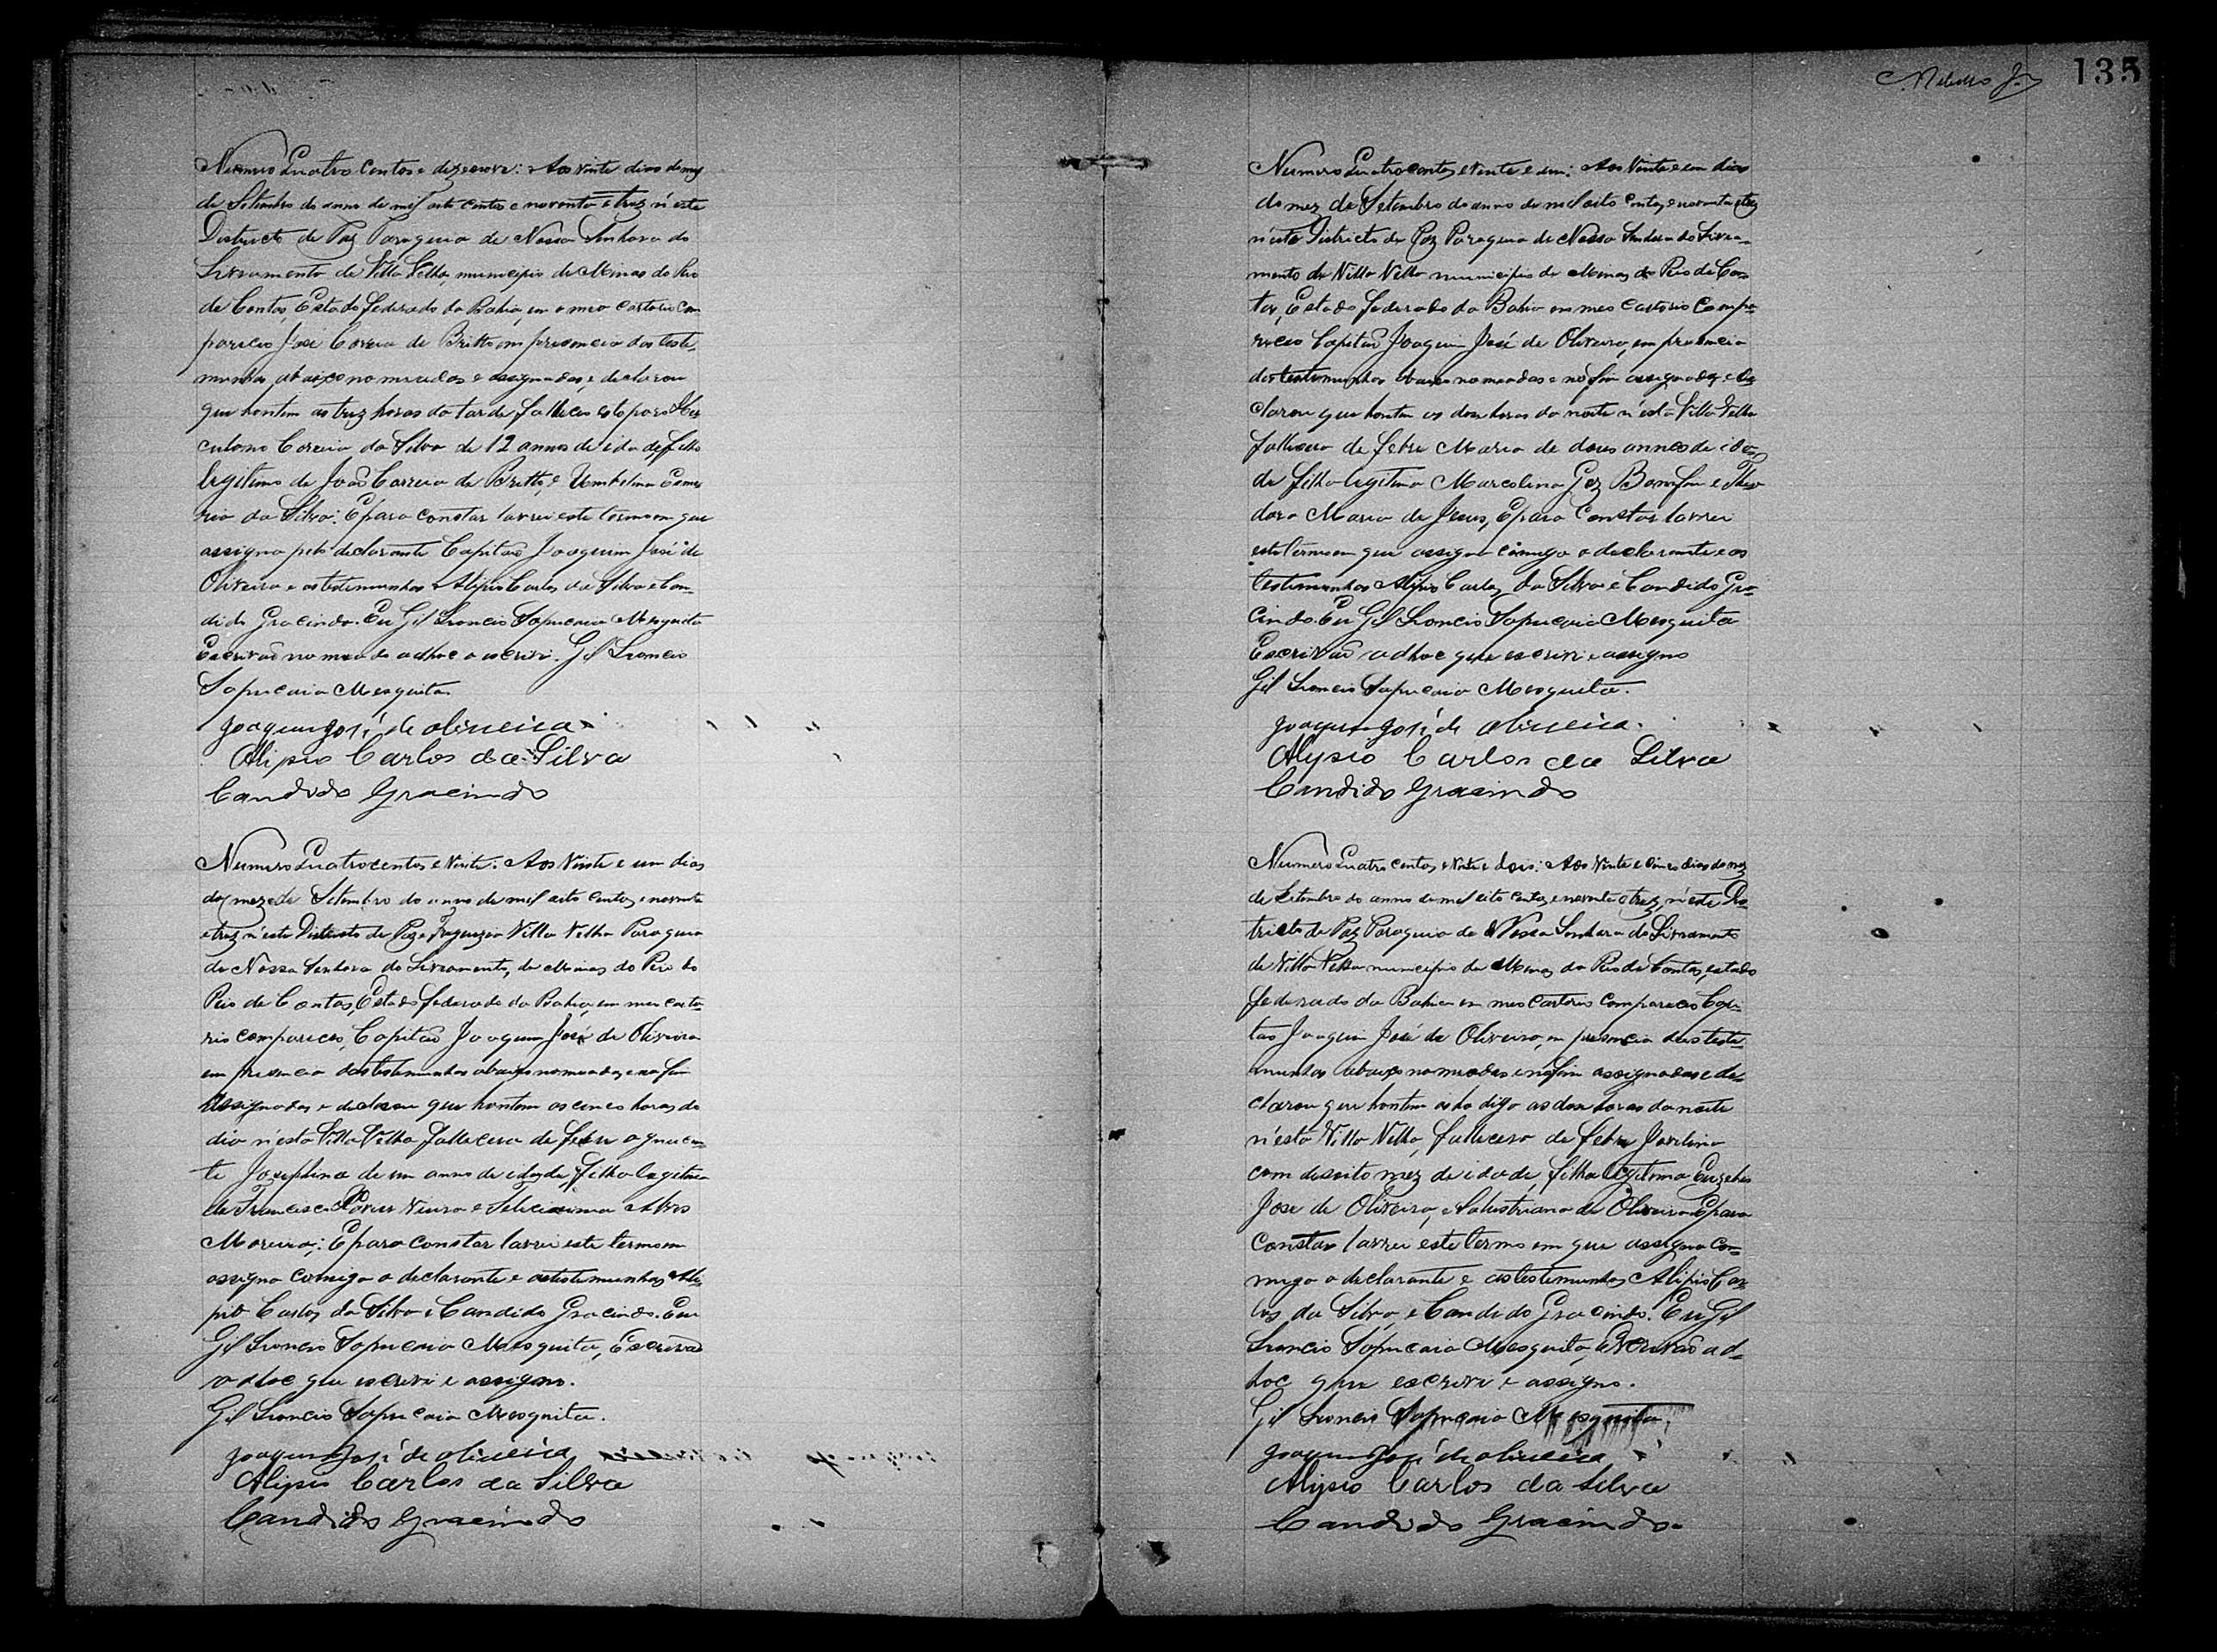 Numero Quatro Centos e dezenove: Aos vinte dias do mez
de Setembro do anno de mil oito centos e noventa e trez n'este
Districto de Paz Paroquia de Nossa Senhora do
Livramento de Villa Velha, municipio de Minas do Rio
de Contas, Estado federado da Bahia, em o meo cartorio com
pareceo José Correia de Britto em presencia das teste,
munhas abaixo nomeadas e assignadas, e declarou
que hontem as trez horas da tarde falleceo
culano Correia da Silva de 12 annos de idade, filho
legitimo de João Correia de Britto, e Umbelina
da Silva: E para constar lavrei este termo em que
assigna pelo declarante Capitão Joaquim José de
Oliveira e as testemunhas Alipio Carlos da Silva e Can-
dido Gracindo. Eu Gil Leoncio Sapucaia Mesquita
Escrivão nomeado adhoc o escrivi. Gil Leoncio
Sapucaia Mesquita
Joaquim José de oliveira
Alipio Carlos da Silva
Candido Gracindo
Numero Quatrocentos e Vinte: Aos Vinte e um dias
do mez de Setembro do anno de mil oito centos e noventa
e trez n'este Districto de Paz e Freguezia Villa Velha Paroquia
de Nossa Senhora do Livramento, de Minas do Rio do
Rio de Contas, Estado federado da Bahia, em meu carto-
rio compareceo, Capitão Joaquim José de Oliveira
em presencia das testemunhas abaixo nomeadas, e no fim
assignadas e declarou que hontem as cinco horas do
dia n'esta Villa Velha fallecera de febre
te Josephina de um anno de idade, filha legitima
de Francisco Xavier e Felicissima Alves
Moreira: E para constar lavrei este termo em
assigna comigo o declarante e as testemunhas Ali,
pio Carlos da Silva e Candido Gracindo. Eu
Gil Leoncio Sapucaia Mesquita, Escrivão
adhoc que escrivi e assigno.
Gil Leoncio Sapucaia Mesquita.
Joaquim José de oliveira
Alipio Carlos da Silva
Candido Gracindo
135
Numero Quatro centos, e Vinte e um: Aos Vinte e um dias
do mez de Setembro do anno de mil oito centos, e noventa e trez
n'este Districto de Paz Paroquia de Nossa Senhora do Livra-
mento de Villa Velha municipio de Minas do Rio de Con-
tas, Estado federado da Bahia em meo cartorio Compa-
receo Capitão Joaquim José de Oliveira, em presencia
das testemunhas abaixo nomeadas e no fim assignadas, e de-
clarou que hontem as doze horas da noite n'esta Villa Velha
fallecera de febre Maria de dous annos de ida-
de filha legitima Marcolino Bomfim e Theo
dora Maria de Jesus, E para Constar lavrei
este termo em que assigna comigo o declarante e as
testemunhas Alipio Carlos da Silva e Candido Gra-
cindo. Eu Gil Leoncio Sapucaia Mesquita
Escrivão adhoc que escrivi e assigno
Gil Leoncio Sapucaia Mesquita.
Joaquim José de oliveira.
Alypio Carlos da Silva
Candido Gracindo
Numero Quatro centos, e Vinte e dois: Aos vinte e cinco dias do mez
de Setembro do anno de mil oito centos, e noventa e trez, n'este Dis-
tricto de Paz Paroquia de Nossa Senhora do Livramento
de Villa Velha municipio de Minas do Rio de Contas, estado
federado da Bahia em meo Cartorio compareceo Capi-
tão Joaquim José de Oliveira, em presencia das teste-
munhas abaixo nomeadas e no fim assignadas e de-
clarou que hontem as digo as doze horas da noite
n'esta Villa Velha, fallecera de febre Jovelina
com desoito mez de idade, filha legitima Euzebio
José de Oliveira, e Salustriana de Oliveira E para
Constar lavrei este termo em que assigna Co-
migo o declarante e as testemunhas Alipio Car-
los da Silva, e Candido Gracindo. Eu Gil
Leoncio Sapucaia Mesquita, Escrivão ad-
hoc que escrivi e assigno.
Gil Leoncio Sapucaia Mesquita
Joaquim José de oliveira
Alipio Carlos da Silva
Candido Gracindo.